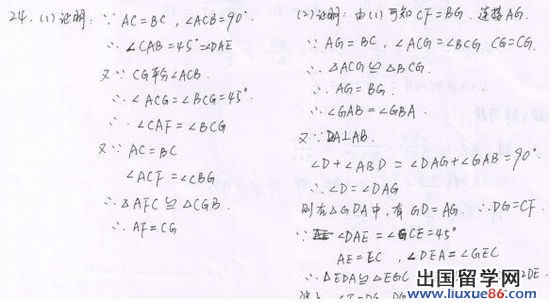 24. (1)证明: ∵ AC=BC, ∠ACB=90°
∴ ∠CAB=45°=∠DAE
又∵ CG平分∠ACB.
∴ ∠ACG=∠BCG=45°
∴ ∠CAF=∠BCG
又∵ AC=BC
∠ACF=∠CBG
∴ △AFC≌△CGB.
∴ AF=CG
(2)证明: 由(1)可知 CF=BG. 连接AG.
∵ AG=BC, ∠ACG=∠BCG CG=CG.
∴ △ACG≌△BCG.
∴ AG=BG.
∴ ∠GAB=∠GBA.
又∵ DA⊥AB.
∠D+∠ABD=∠DAG+∠GAB=90°
∴ ∠D=∠DAG
则在△GDA中, 有 GD=AG. ∴ DG=CF.
∵ ∠DAE=∠GCE=45°
AE=EC, ∠DEA=∠GEC
∴ △EDA≌△EGC
2DE.
出国留学网
www.liuxue86.com